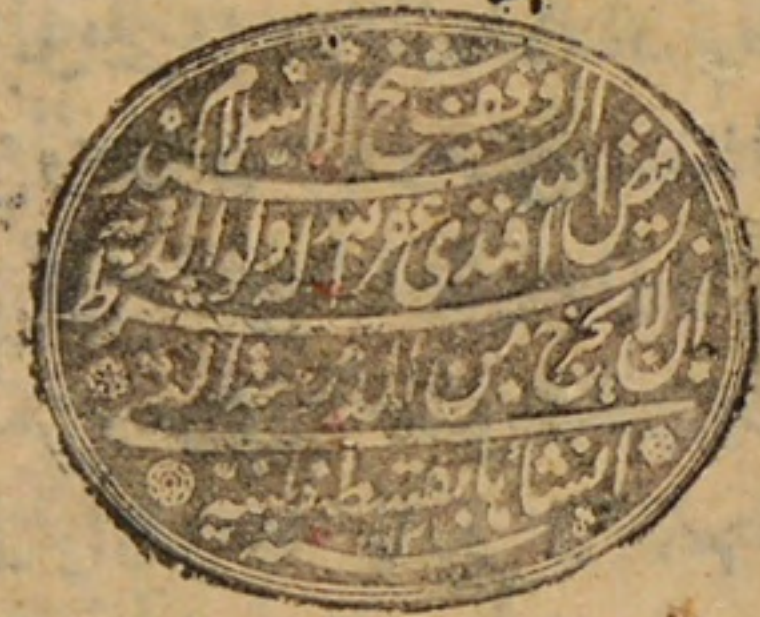 وقف شيخ الاسلام السيد
فيض الله افندى غفر الله له ولوالديه
بشرط ان لا يخرج من المدرسة التى
انشأها بقسطنطينية
سنة